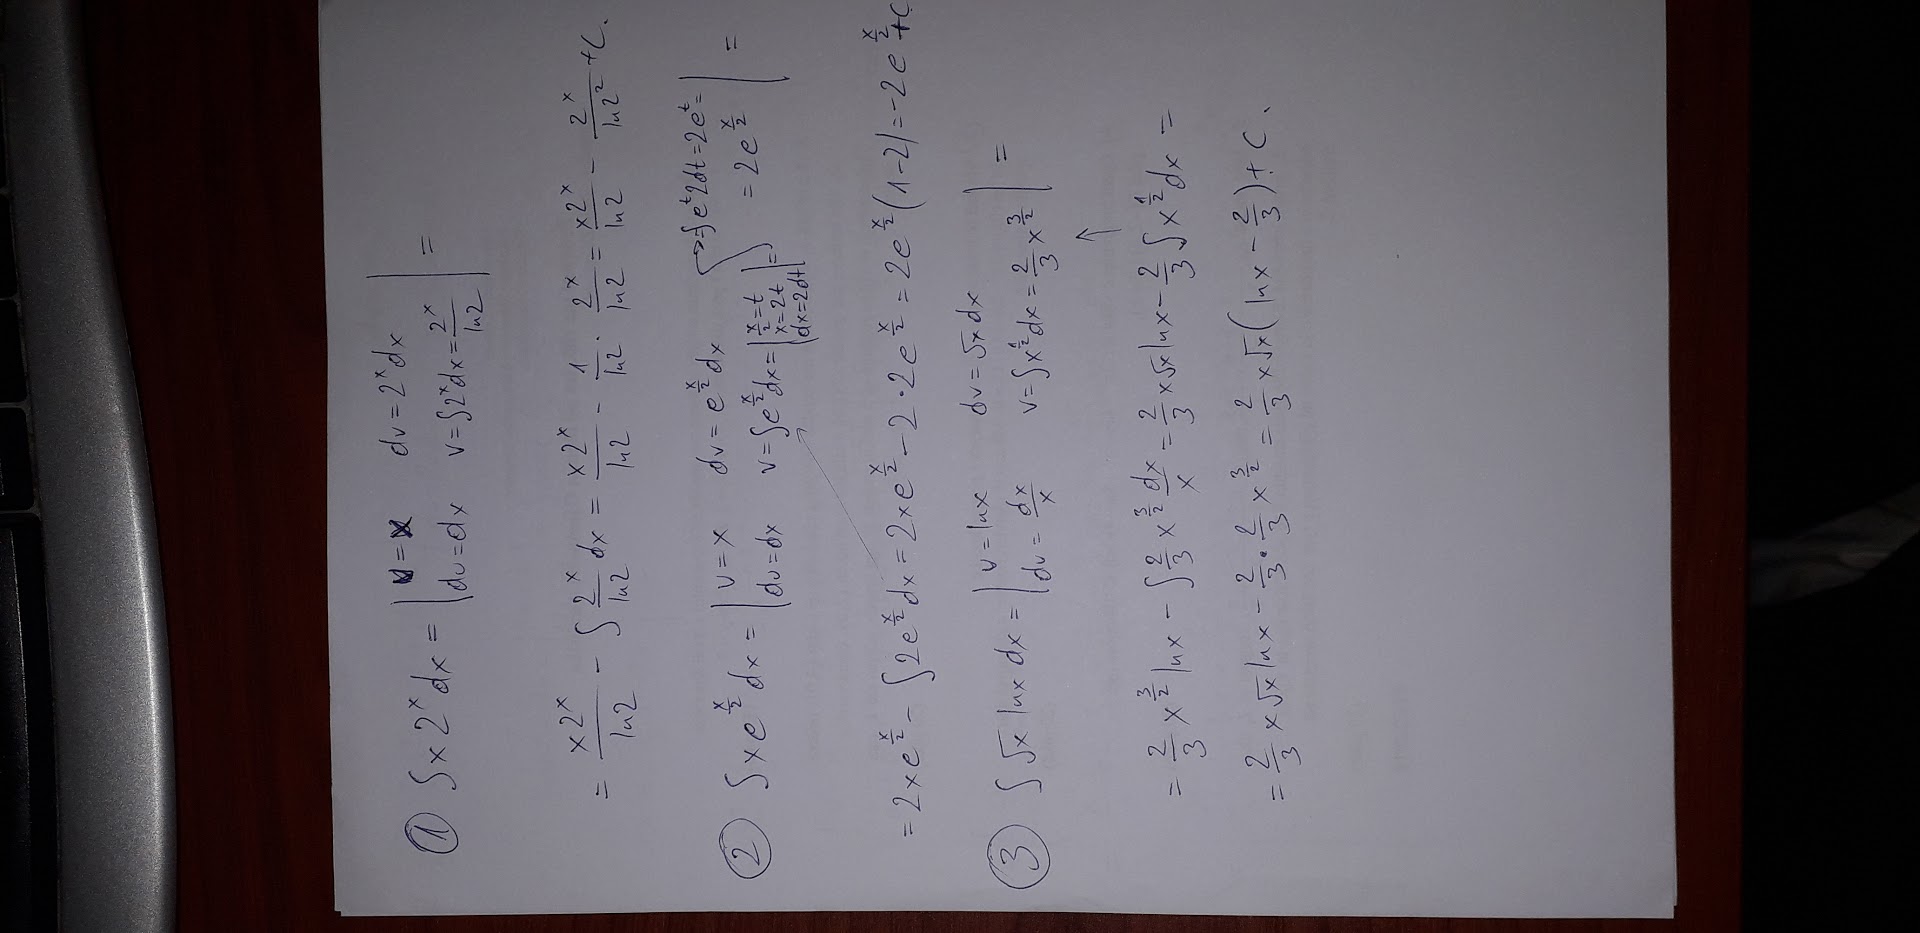 ① ∫x 2^x dx = | u = x   dv = 2^x dx |
| du = dx   v = ∫2^x dx = 2^x/ln2 | =
= x2^x/ln2 - ∫ 2^x/ln2 dx = x2^x/ln2 - 1/ln2 · 2^x/ln2 = x2^x/ln2 - 2^x/ln2² + C.
② ∫x e^(x/2) dx = | u = x   dv = e^(x/2) dx   → = ∫e^t 2dt = 2e^t =
| du = dx   v = ∫e^(x/2) dx = | x/2 = t   = 2e^(x/2) | =
x = 2t | =
dx = 2dt |
= 2xe^(x/2) - ∫2e^(x/2) dx = 2xe^(x/2) - 2·2e^(x/2) = 2e^(x/2) (1-2) = -2e^(x/2) + C
③ ∫√x lnx dx = | u = lnx   dv = √x dx |
| du = dx/x   v = ∫x^(1/2) dx = 2/3 x^(3/2) | =
= 2/3 x^(3/2) lnx - ∫ 2/3 x^(3/2) dx/x = 2/3 x√x lnx - 2/3 ∫x^(1/2) dx =
= 2/3 x√x lnx - 2/3 · 2/3 x^(3/2) = 2/3 x√x (lnx - 2/3) + C.